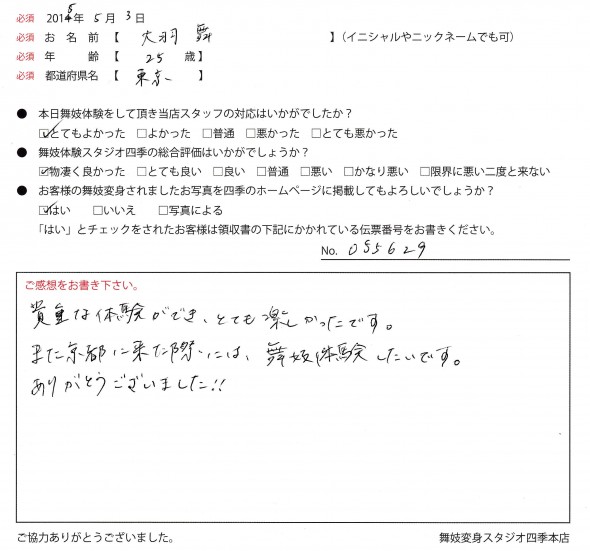 必須 2015年 5月 3日
必須 お名前【 大羽 舞 】(イニシャルやニックネームでも可)
必須 年齢【 25 歳】
必須 都道府県名【 東京 】
● 本日舞妓体験をして頂き当店スタッフの対応はいかがでしたか?
☑とてもよかった □よかった □普通 □悪かった □とても悪かった
● 舞妓体験スタジオ四季の総合評価はいかがでしょうか?
☑物凄く良かった □とても良い □良い □普通 □悪い □かなり悪い □限界に悪い二度と来ない
● お客様の舞妓変身されましたお写真を四季のホームページに掲載してもよろしいでしょうか?
☑はい □いいえ □写真による
「はい」とチェックをされたお客様は領収書の下記にかかれている伝票番号をお書きください。
No. 055629
ご感想をお書き下さい。
貴重な体験ができ、とても楽しかったです。
また京都に来た際には、舞妓体験したいです。
ありがとうございました!!
ご協力ありがとうございました。 舞妓変身スタジオ四季本店